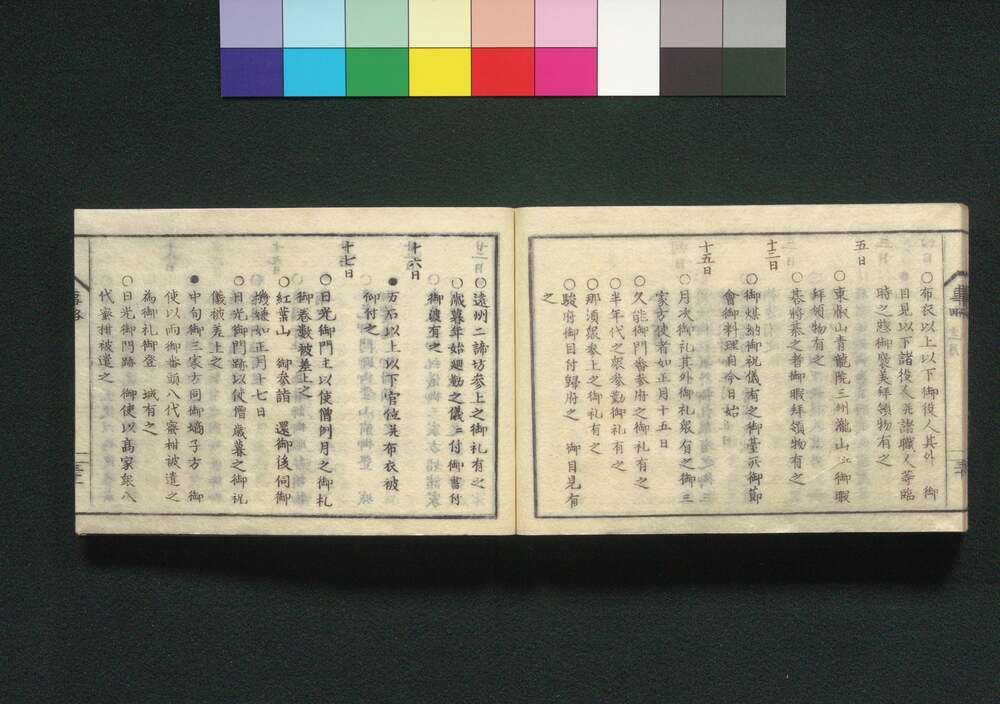 ○布衣以上以下御役人其外　御
目見以下諸役人并諸職人等臨
時之勤御褒美拝領物有之
五日
○東叡山青龍院三州瀧山江御暇
拝領物有之
○碁将棊之者御暇拝領物有之
十三日
○御煤納御祝儀有之御臺所御節
會御料理自今日始
十五日
○月次御礼其外御礼衆有之御三
家方使者如正月十五日
○久能御門番参上之御礼有之
○半年代之衆参勤御礼有之
○那須衆参上之御礼有之
○駿府御目付歸府之　御目見有
之
○遠州二諦坊参上之御礼有之
○歳暮年始廻勤之儀ニ付御書付
御渡有之
十六日
●万石以上以下官位并布衣被
仰付之
十七日
○日光御門主以使僧例月之御札
御巻数被差上之
○紅葉山　御参詣　還御後伺御
機嫌如正月十七日
○日光御門跡以使僧歳暮之御祝
儀被差上之
●中旬御三家方同御嫡子方　御
使以両御番頭八代蜜柑被遣之
為御礼御登　城有之
○日光御門跡　御使以高家衆八
代蜜柑被遣之